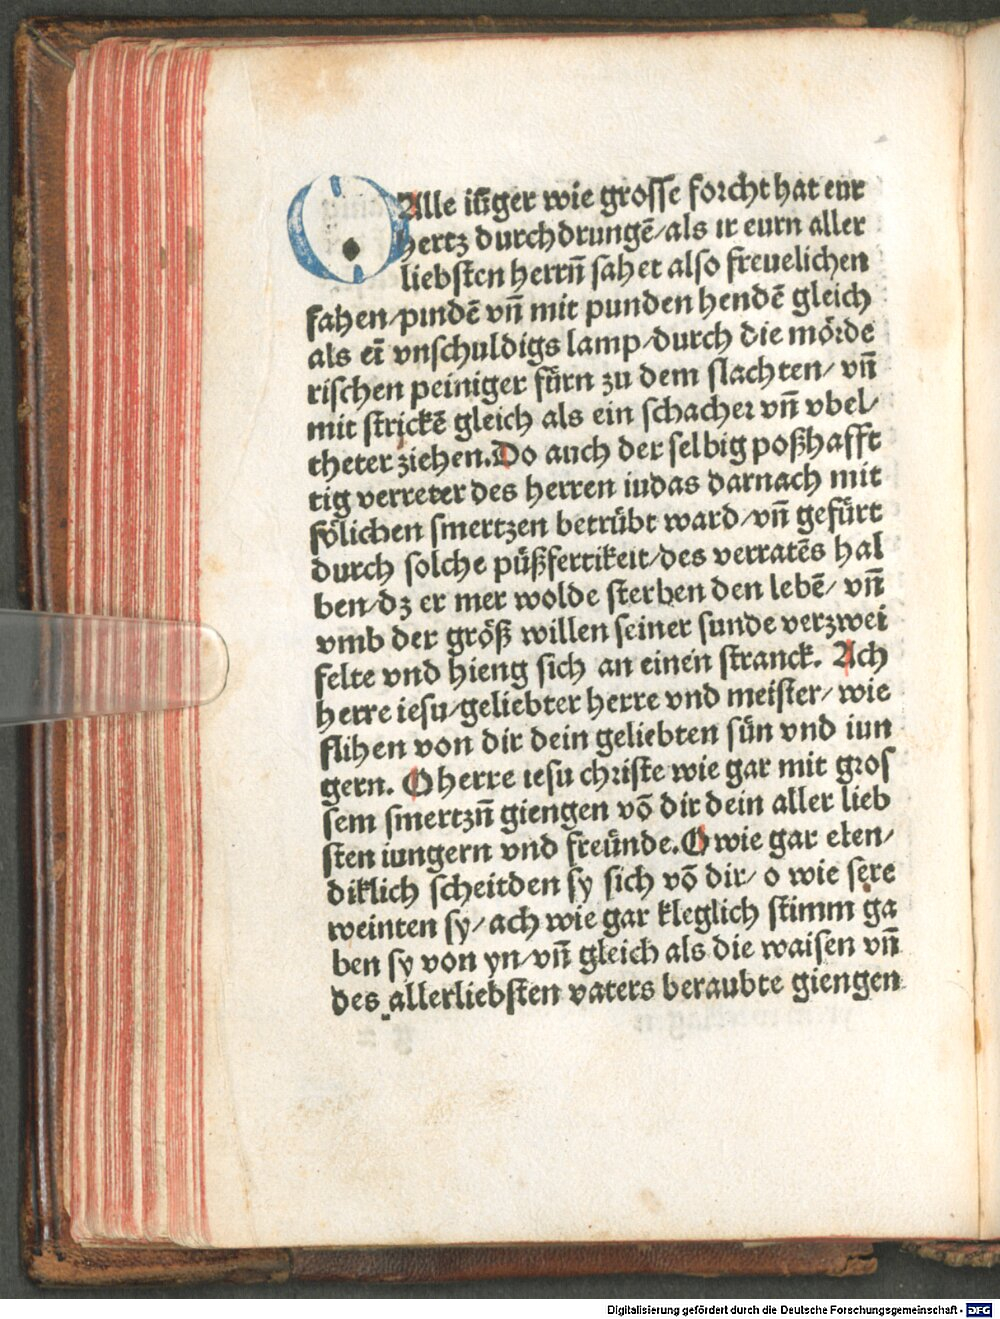 O Alle iũger wie grosse forcht hat eur
hertz durchdrungẽ/als ir eurn aller
liebsten herrñ sahet also freuelichen
fahen/pindẽ vñ mit punden hendẽ gleich
als eĩ vnschuldigs lamp/durch die mörde
rischen peiniger fürn zu dem slachten/ vñ
mit strickẽ gleich als ein schacher vñ vbel/
theter ziehen. Do auch der selbig poßhafft
tig verreter des herren iudas darnach mit
sölichen smertzen betrübt ward/vñ gefürt
durch solche püßfertikeit/des verratẽs hal
ben/dz er mer wolde sterben den lebẽ/ vñ
vmb der größ willen seiner sunde verzwei
felte vnd hieng sich an einen stranck. Ach
herre iesu/geliebter herre vnd meister/ wie
flihen von dir dein geliebten sün vnd iun
gern. O herre iesu christe wie gar mit gros
sem smertzñ giengen võ dir dein aller lieb
sten iungern vnd freünde. O wie gar elen/
diklich scheitden sy sich võ dir/ o wie sere
weinten sy/ ach wie gar kleglich stimm ga
ben sy von yn/vñ gleich als die waisen vñ
des allerliebsten vaters beraubte giengen
Digitalisierung gefördert durch die Deutsche Forschungsgemeinschaft - DFG